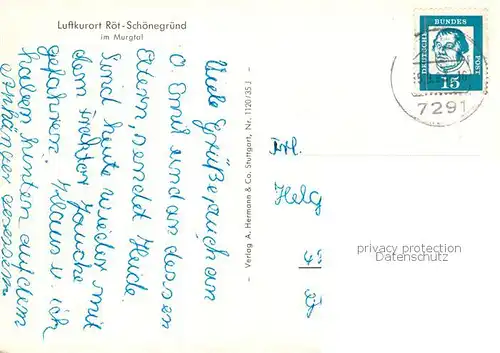 Luftkurort Röt-Schönegründ
im Murgtal
Viele Grüße, auch an
O. Emil und an dessen
Eltern, sendet Heide.
Sind heute wieder mit
dem Traktor Jauche
gefahren. Klaus u. ich
haben hinten auf dem
Anhänger gesessen.
– Verlag A. Hermann & Co. Stuttgart, Nr. 1120/35 J –
DEUTSCHE
BUNDES
POST
15
7291
Frl.
Helg
privacy protection
Datenschutz